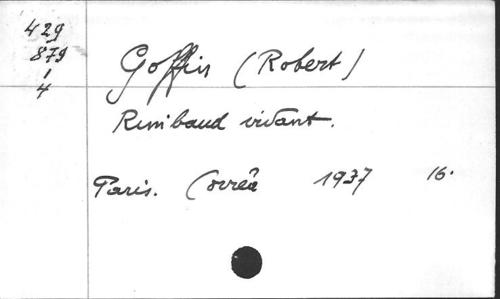 429
879
1
4
Goffin (Robert)
Rimbaud vivant.
Paris. Corrêa 1937 16.